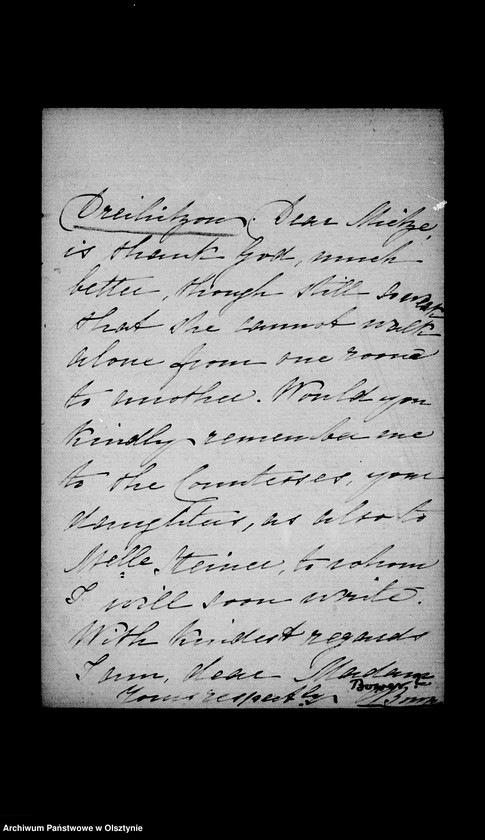 (Dreilützow). Dear Mietze,
is thank God, much
better, though still so weak
that she cannot walk
alone from one room
to another. Would you
kindly remember me
to the Comtesses, your
daughters, as also to
Melle. Steiner, to whom
I will soon write.
With kindest regards
I am, dear Madam
Yours respectly.
Archiwum Państwowe w Olsztynie